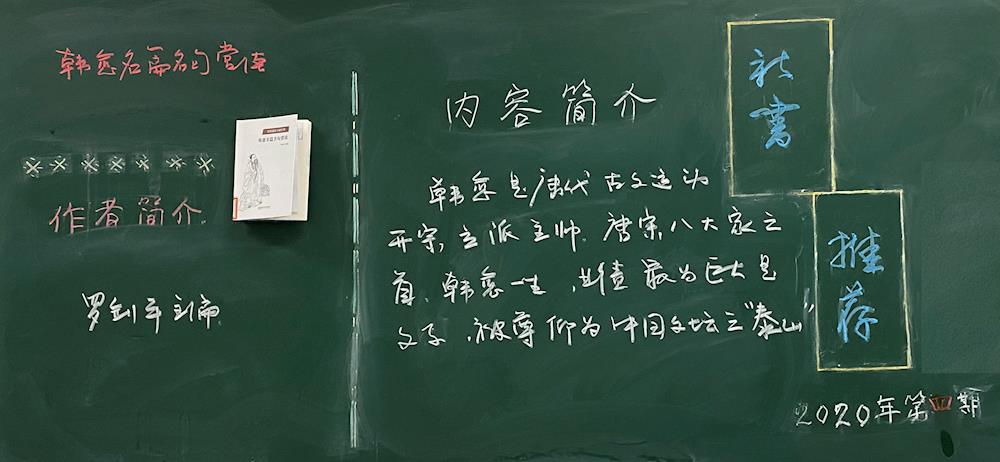 韩愈名篇名句赏读
作者简介
罗剑平主编
内容简介
韩愈是唐代古文运动
开宗立派主帅，唐宋八大家之
首。韩愈一生，业绩最为巨大是
文学，被尊仰为中国文坛之“泰山”
新书
推荐
2020年第四期